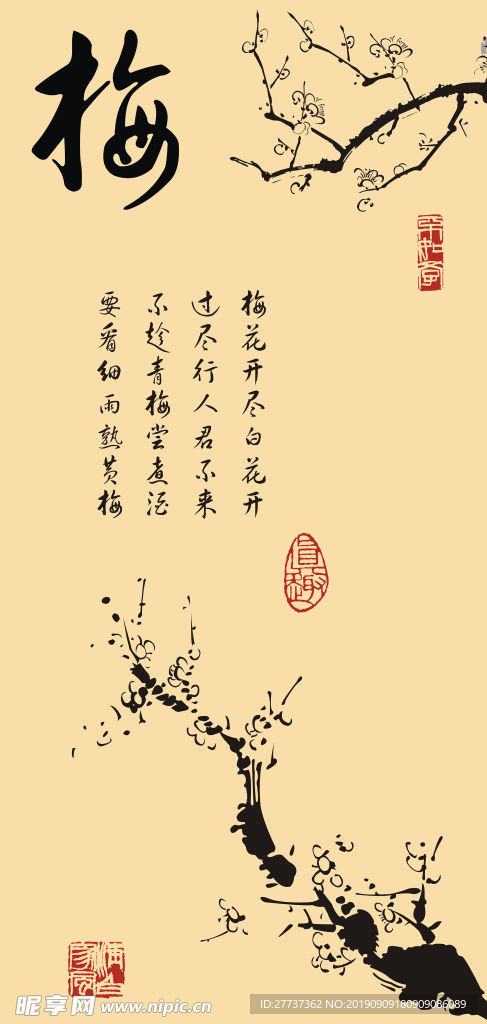 梅
梅花开尽白花开
过尽行人君不来
不趁青梅尝煮酒
要看细雨熟黄梅
昵享网 www.nipic.cn
ID:27737362 NO:20190909180909086089